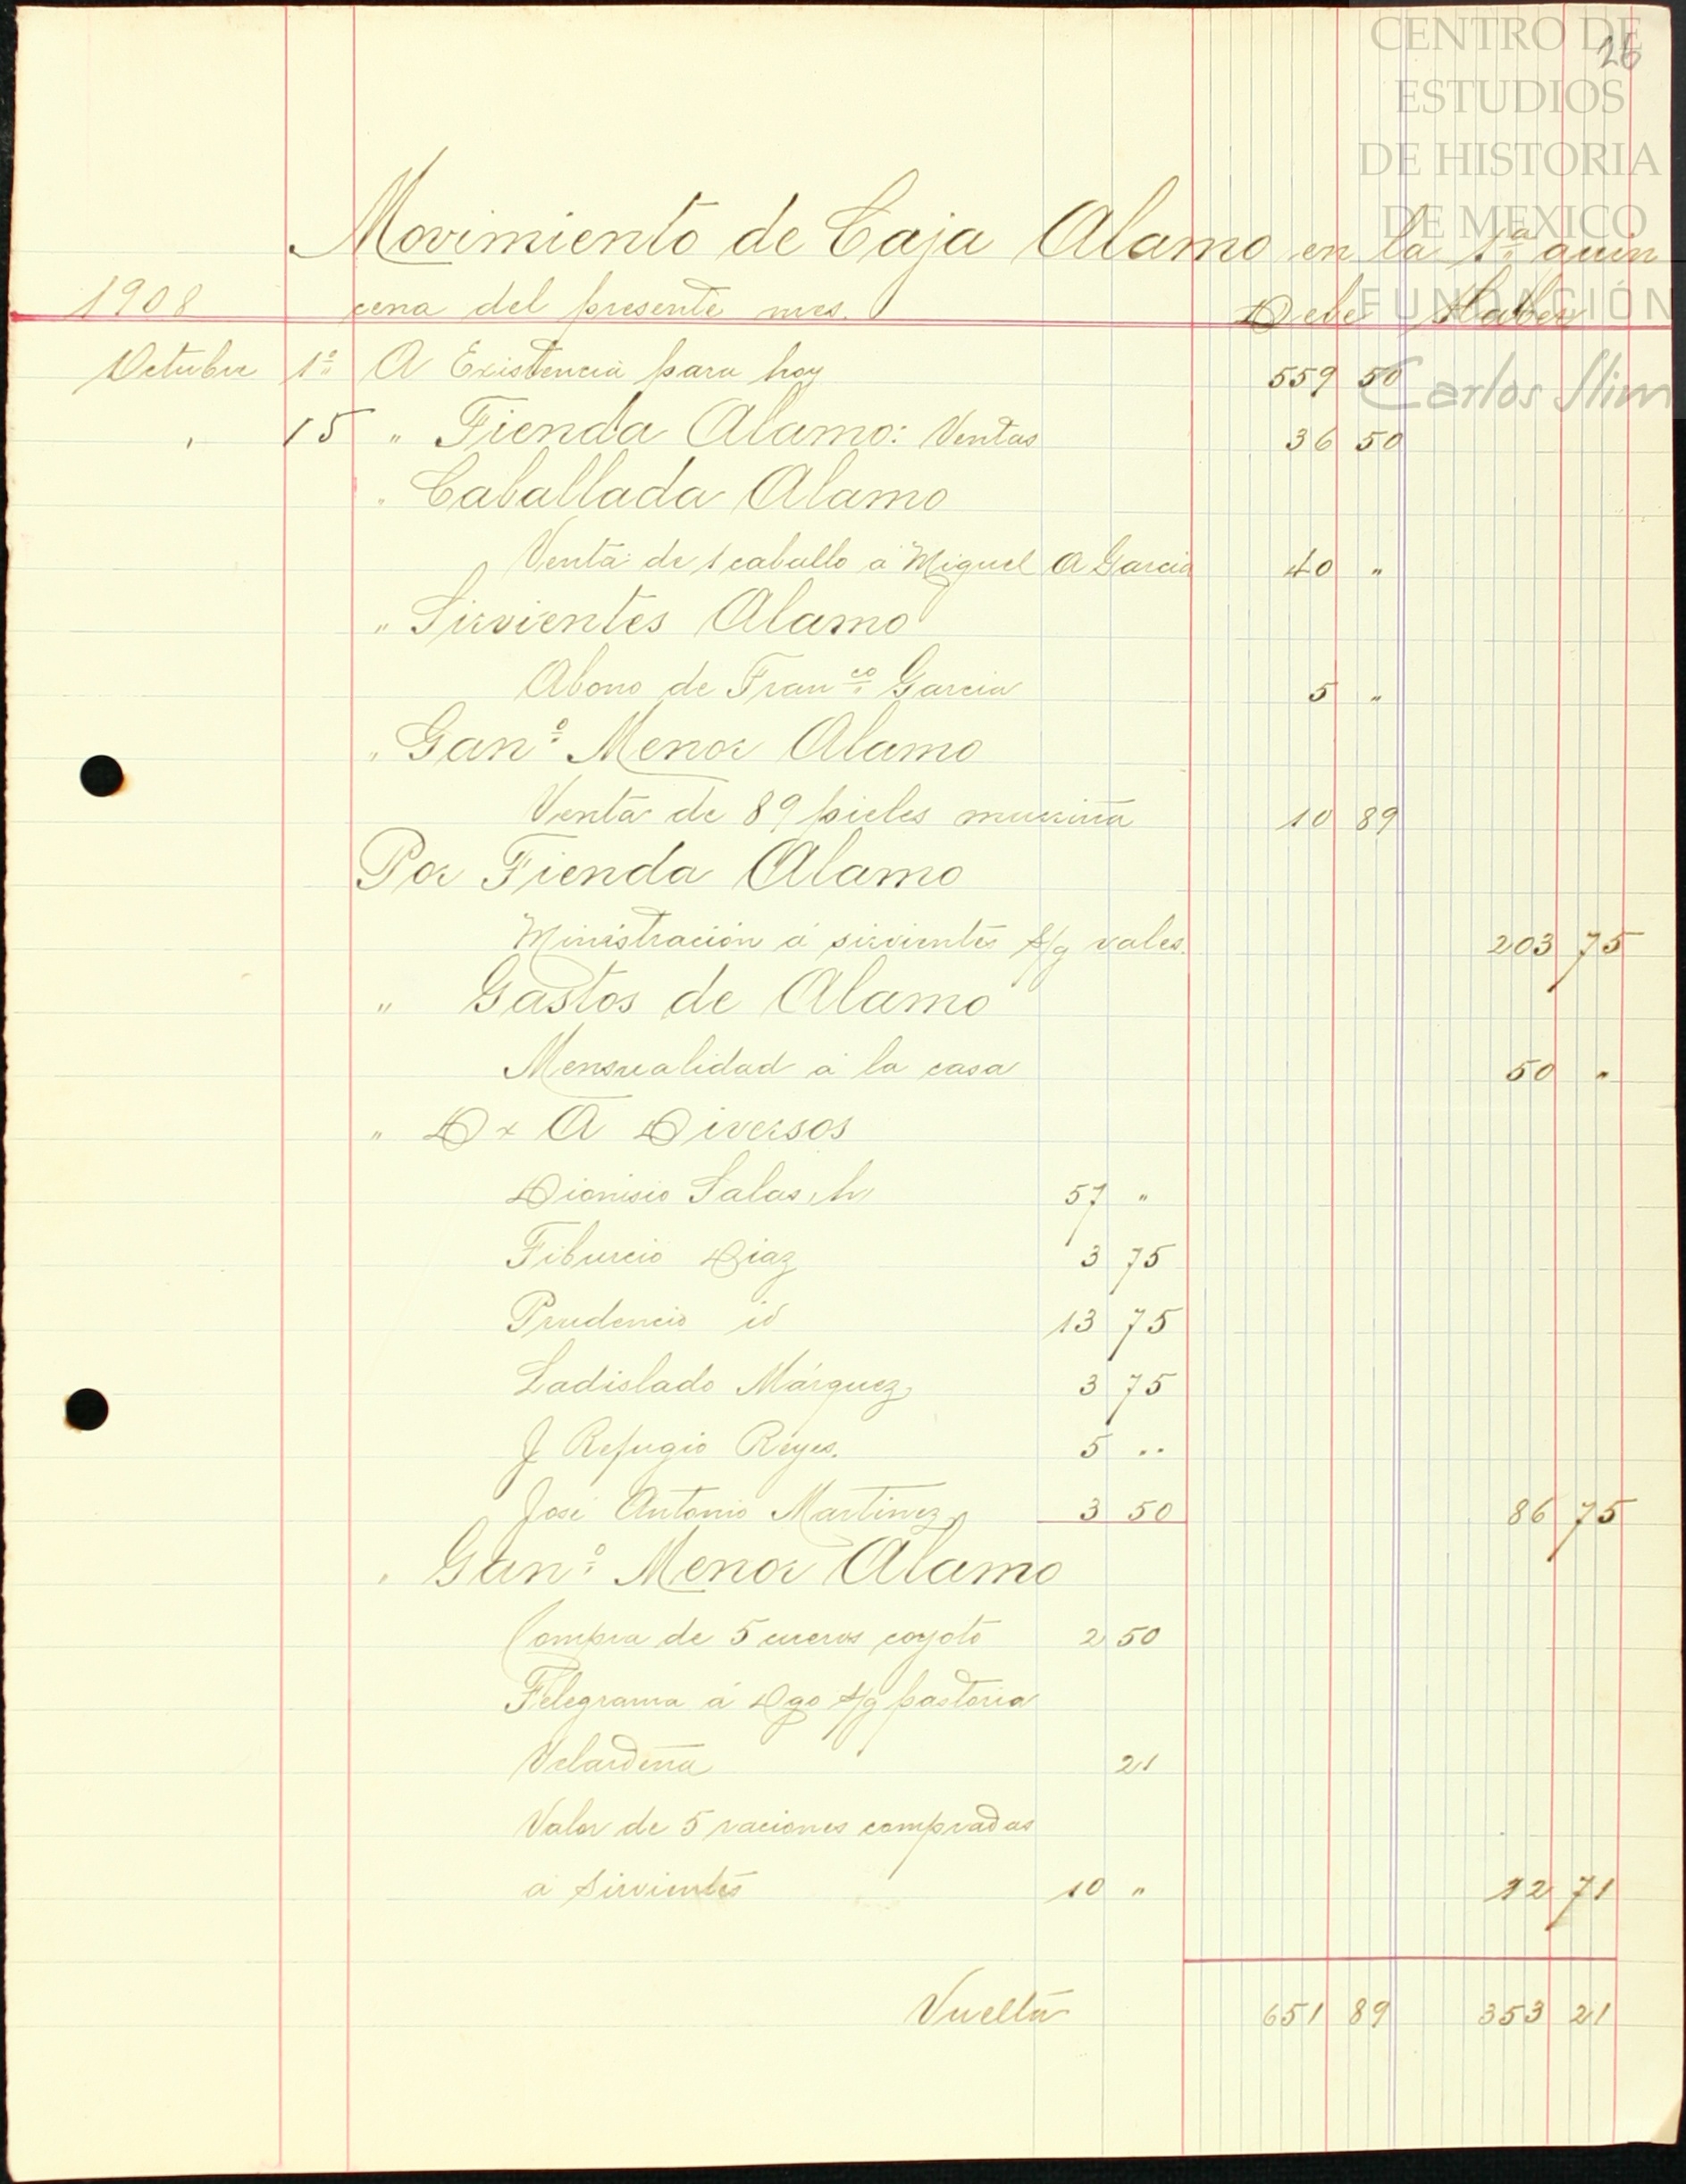 CENTRO DE
ESTUDIOS
DE HISTORIA
DE MEXICO
FUNDACIÓN
Carlos Slim
26
Movimiento de Caja Alamo en la 1ª quin
1908 cena del presente mes. Debe Haber
Octubre 1º A Existencia para hoy 559 50
" 15 " Tienda Alamo: Ventas 36 50
" Caballada Alamo
Venta de 1 caballo á Miguel A Garcia 40 "
" Sirvientes Alamo
Abono de Franco. Garcia 5 "
" Gano. Menor Alamo
Venta de 89 pieles muriña 10 89
Por Tienda Alamo
Ministración á sirvientes s/g vales. 203 75
" Gastos de Alamo
Mensualidad á la casa 50 "
" D x A Diversos
Dionisio Salas, h 57 "
Tiburcio Diaz 3 75
Prudencio id 13 75
Ladislado Márquez 3 75
J Refugio Reyes. 5 ..
José Antonio Martinez 3 50 86 75
" Gano. Menor Alamo
Compra de 5 cueros coyote 2 50
Telegrama á Dgo s/g pastoria
Velardeña 21
Valor de 5 raciones compradas
á sirvientes 10 " 12 71
Vuelta 651 89 353 21